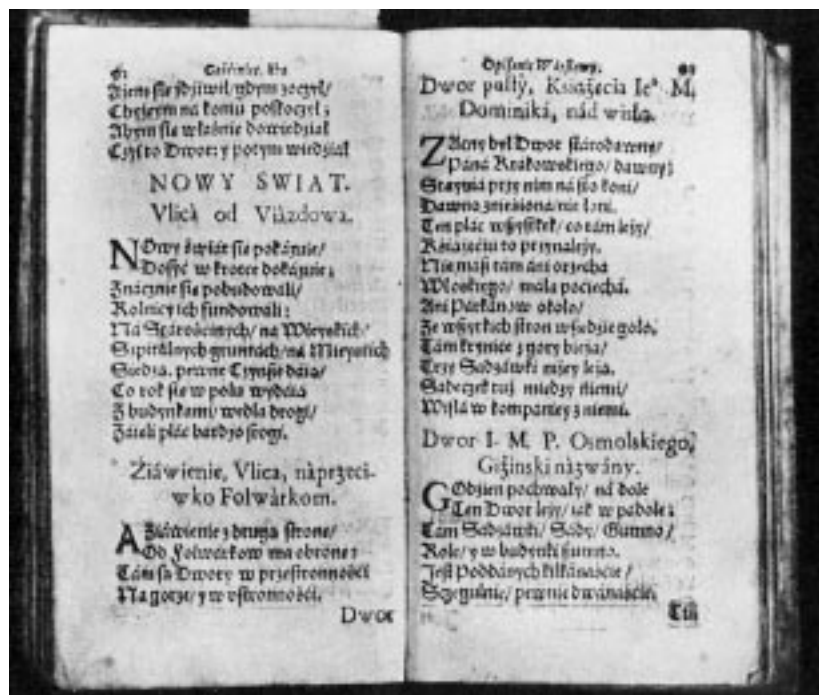 Gościniec, abo
Ażem się zdziwił/ gdym zoczył/
Chyżeym na komu poskoczył;
Abym się właśnie dowiedział
Czyi to Dwor: y potym wiedział
NOWY SWIAT.
Vlicá od Viázdowa.
NOwy świát się pokázuie/
Dosyć w krotce dokázuie;
Znácznie się pobudowáli/
Rolnicy ich fundowáli:
Ná Stárościnych/ ná Mieyskich/
Szpitálnych gruntách/ ná Mieyskich
Siedzą, pewne Czynsze dáią/
Co rok się w polu wydáią
Z budynkámi/ wedla drogi/
Záięli plác bárdzo srogi.
Ziáwienie, Vlicá, náprzeci-
wko Folwárkom.
A Ziáwienie z drugą stronę/
Od Folwárkow ma obronę:
Tám są Dwory w przestronności
Ná gorze/ y w vstronności.
Dwor
Opisanie Wárszáwy.
Dwor pusty, Książęcia Ie° M.
Dominiká, nád wisłą.
ZAcny był Dwor stárodawny/
Páná Krákowskiego/ dawny;
Stáynia przy nim ná sto koni/
Dawno zniesiona/ nie łoni.
Ten plác wszystek/ co tám leży/
Książęciu to przynależy.
Niemász tám áni orzechá
Włoskiego/ máła pociechá.
Ani Párkánow około/
Ze wszytkich stron wszędzie goło.
Tám krynice z gory bieżą/
Trzy Sadzáwki niżey leżą.
Sádeczek tuż między niemi/
Wisłá w kompániey z niemi.
Dwor I. M. P. Osmolskiego,
Giżinski názwány.
GOdzien pochwały/ ná dole
Ten Dwor leży/ iák w pádole;
Tám Sadzáwki/ Sády/ Gumno/
Role/ y w budynki szumno.
Jest Poddánych kilkánaście/
Szczegulnie/ pewnie dwánaście.